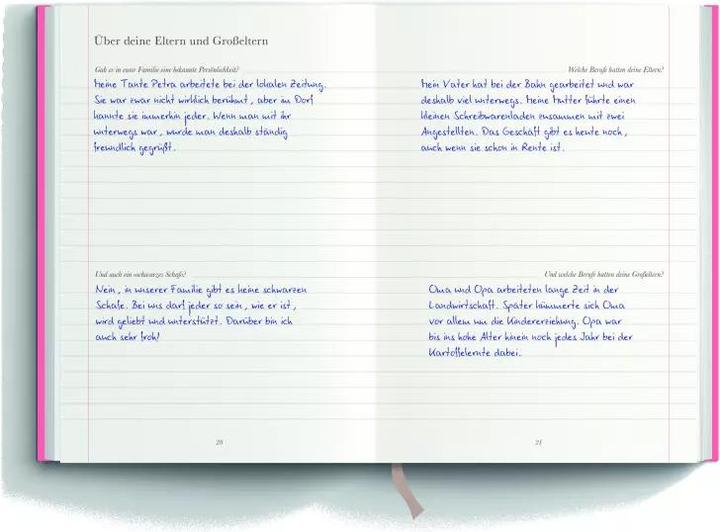 Über deine Eltern und Großeltern
Gab es in eurer Familie eine bekannte Persönlichkeit?
Meine Tante Petra arbeitete bei der lokalen Zeitung.
Sie war zwar nicht wirklich berühmt, aber im Dorf
kannte sie immerhin jeder. Wenn man mit ihr
unterwegs war, wurde man deshalb ständig
freundlich gegrüßt.
Und auch ein schwarzes Schaf?
Nein, in unserer Familie gibt es keine schwarzen
Schafe. Bei uns darf jeder so sein, wie er ist,
wird geliebt und unterstützt. Darüber bin ich
auch sehr froh!
20
Welche Berufe hatten deine Eltern?
Mein Vater hat bei der Bahn gearbeitet und war
deshalb viel unterwegs. Meine Mutter führte einen
kleinen Schreibwarenladen zusammen mit zwei
Angestellten. Das Geschäft gibt es heute noch,
auch wenn sie schon in Rente ist.
Und welche Berufe hatten deine Großeltern?
Oma und Opa arbeiteten lange Zeit in der
Landwirtschaft. Später kümmerte sich Oma
vor allem um die Kindererziehung. Opa war
bis ins hohe Alter hinein noch jedes Jahr bei der
Kartoffelernte dabei.
21